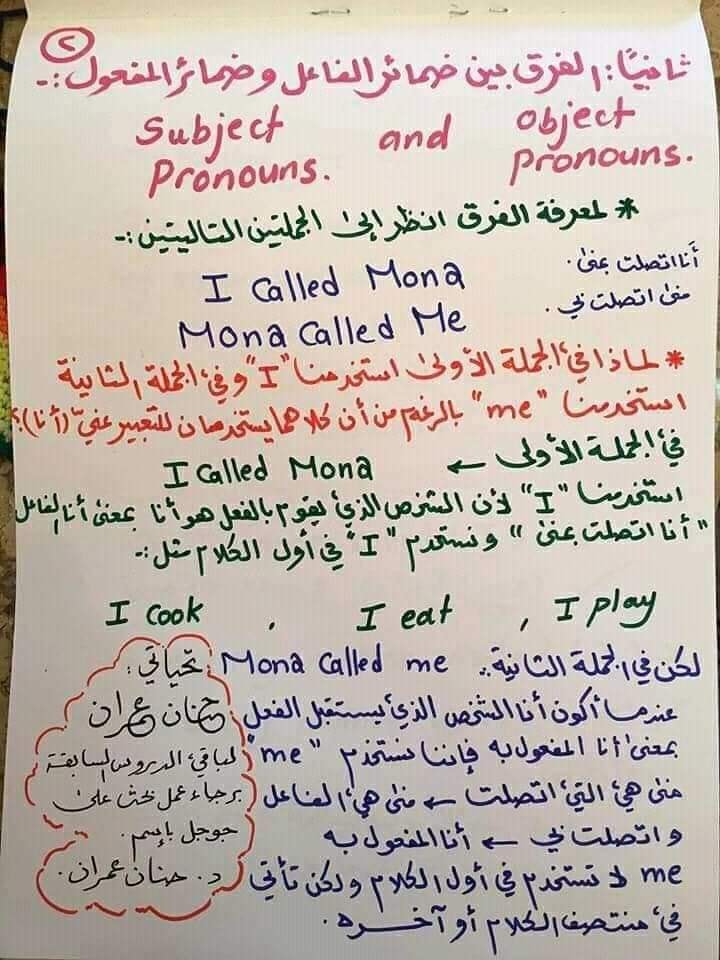 ٢
ثانيًا: الفرق بين ضمائر الفاعل وضمائر المفعول:-
Subject Pronouns. and object pronouns.
* لمعرفة الفرق انظر إلى الجملتين التاليتين:-
I Called Mona
أنا اتصلت بمنى.
Mona Called Me
منى اتصلت بي.
* لماذا في الجملة الأولى استخدمنا "I" وفي الجملة الثانية
استخدمنا "me" بالرغم من أن كلاهما يستخدمان للتعبير عنيّ (أنا)؟
في الجملة الأولى ← I Called Mona
استخدمنا "I" لأن الشخص الذي يقوم بالفعل هو أنا بمعنى أنا الفاعل
"أنا اتصلت بمنى" ونستخدم "I" في أول الكلام مثل:-
I cook , I eat , I play
لكن في الجملة الثانية.. Mona Called me
عندما أكون أنا الشخص الذي يستقبل الفعل
بمعنى أنا المفعول به فإننا نستخدم "me"
منى هي التي اتصلت ← منى هي الفاعل
واتصلت بي ← أنا المفعول به
me لا تستخدم في أول الكلام ولكن تأتي
في منتصف الكلام أو آخره.
تحياتي:
حنان عمران
لباقي الدروس السابقة
برجاء عمل بحث على
جوجل بإسم.
د. حنان عمران.